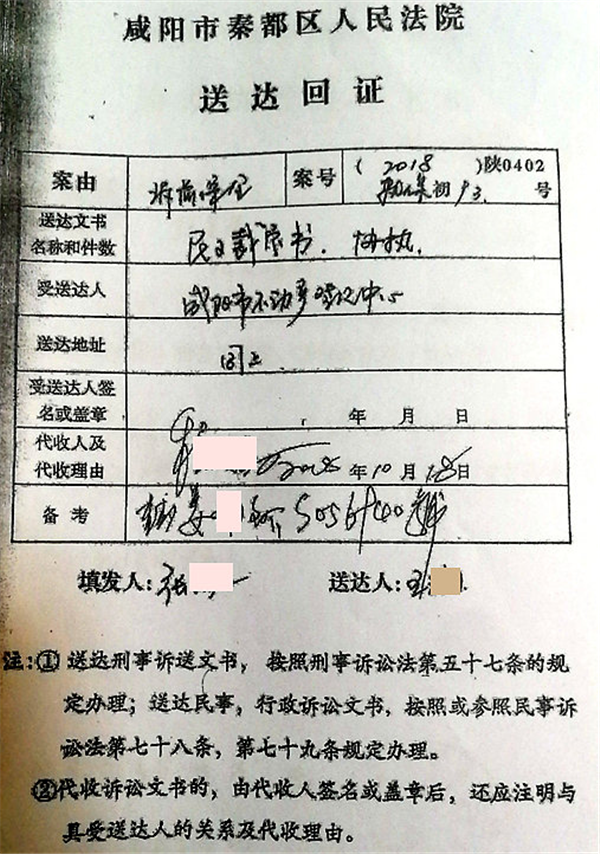 咸阳市秦都区人民法院
送达回证
案由 诉前保全 案号 (2018)陕0402 初93号
送达文书名称和件数 民事裁定书. 协执.
受送达人 咸阳市不动产登记中心
送达地址 同上
受送达人签名或盖章 年 月 日
代收人及代收理由 2018年10月18日
备考
填发人:张 送达人:
注:①送达刑事诉送文书，按照刑事诉讼法第五十七条的规
定办理；送达民事，行政诉讼文书，按照或参照民事诉
讼法第七十八条，第七十九条规定办理。
②代收诉讼文书的，由代收人签名或盖章后，还应注明与
具受送达人的关系及代收理由。